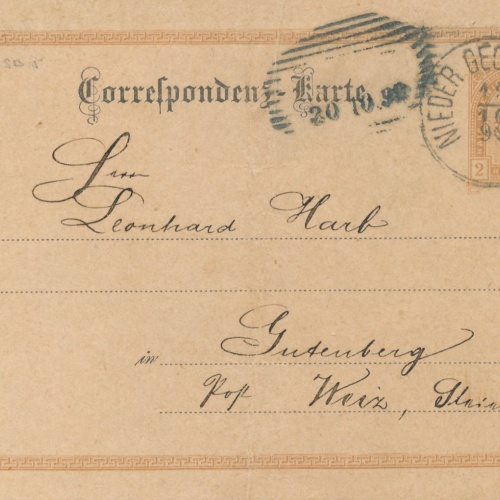 Correspondenz-Karte
20 10 9
NIEDER GE
2
Herrn
Leonhard Harb
in Gutenberg
Post Weiz, Stei